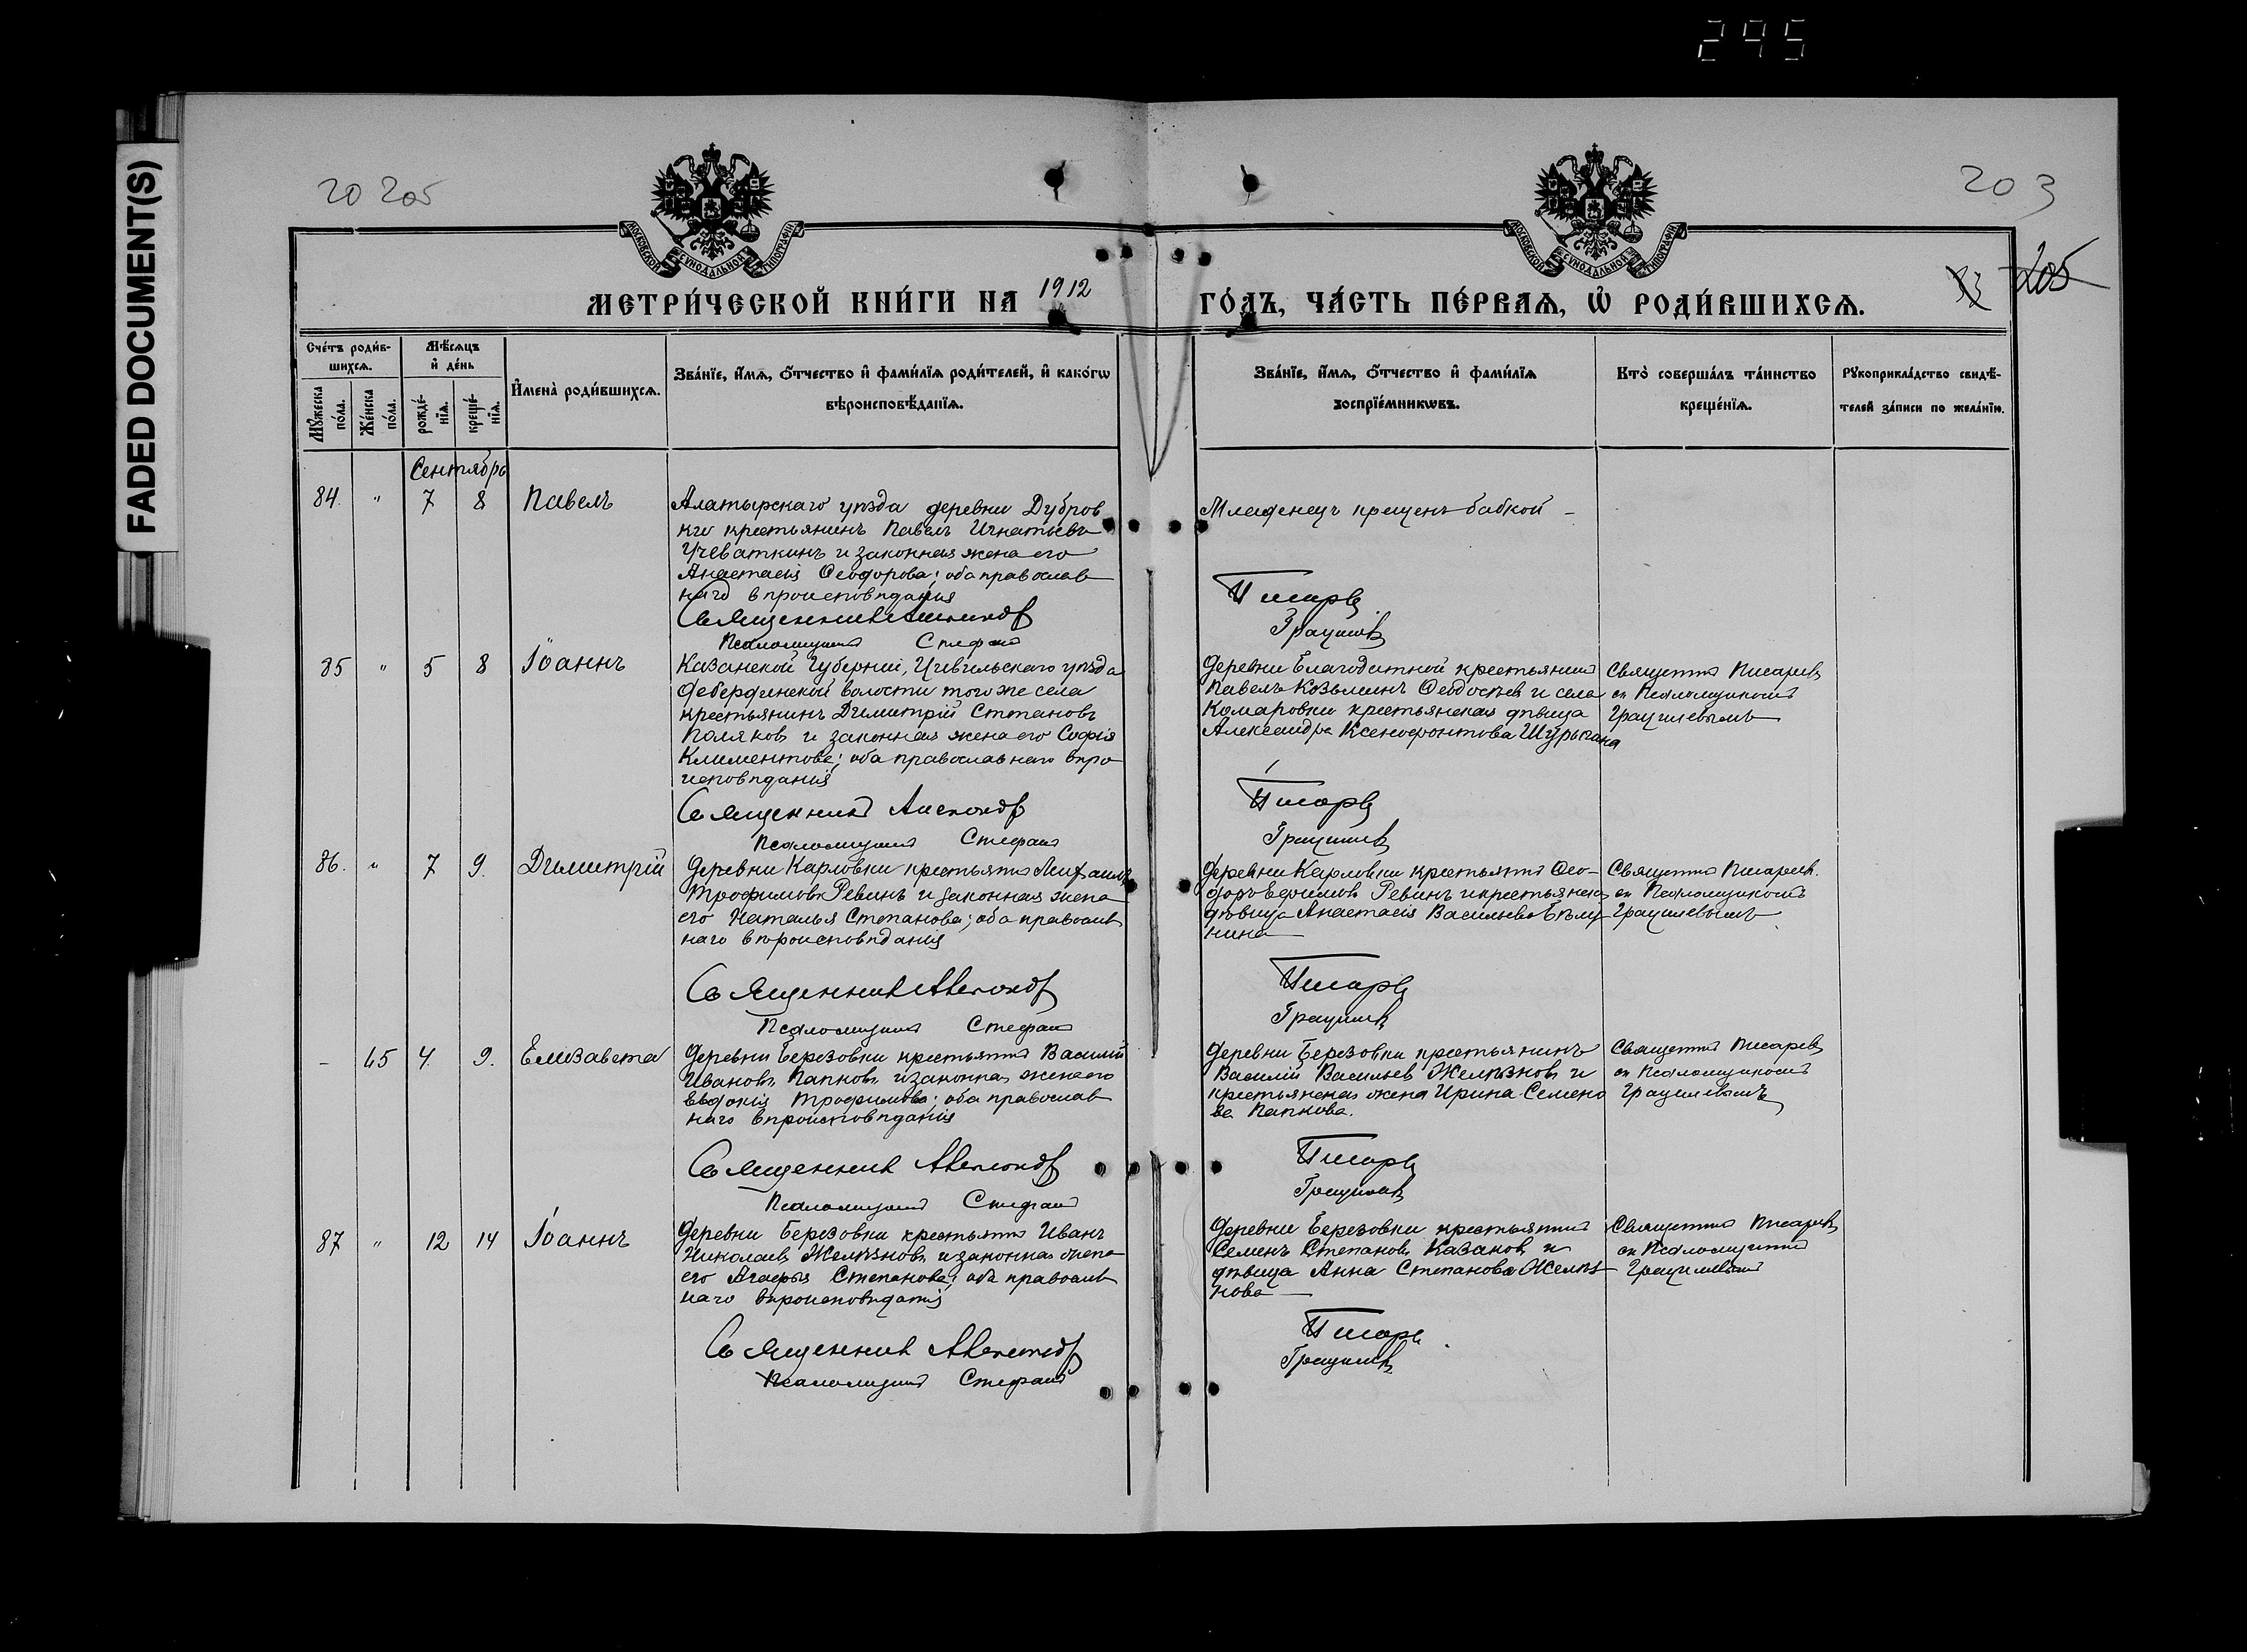 295
FADED DOCUMENT(S)
20 205
203
205
МОСКОВСКОЙ СѴНОДАЛЬНОЙ ТИПОГРАФІИ
МОСКОВСКОЙ СѴНОДАЛЬНОЙ ТИПОГРАФІИ
МЕТРИ́ЧЕСКОЙ КНИ́ГИ НА 1912 ГО́ДЪ, ЧА́СТЬ ПЕ́РВАѦ, Ѡ҆ РОДИ́ВШИХСѦ.
Сче́тъ роди́в-
шихсѧ.
Мѣ́сѧцъ
и҆ де́нь
Мꙋ́жеска по́ла.
Же́нска по́ла.
рожде́-
нїѧ.
креще́-
нїѧ.
И҆мена̀ роди́вшихсѧ.
Зва́нїе, и҆́мѧ, о҆́тчество и҆ фами́лїѧ роди́телей, и҆ како́гѡ
вѣроисповѣ́данїѧ.
Зва́нїе, и҆́мѧ, о҆́тчество и҆ фами́лїѧ
воспрїе́мникѡвъ.
Кто̀ соверша́лъ та́инство
креще́нїѧ.
Рꙋкоприкла́дство свидѣ́-
телей за́писи по жела́нїю.
Сентября
84. " 7 8 Павелъ
Алатырскаго уѣзда деревни Дубров
ки крестьянинъ Павелъ Игнатьевъ
Учеваткинъ и законная жена его
Анастасія Ѳеодорова; оба православ
наго вѣроисповѣданія
Священникъ
Псаломщикъ Стефан
Младенецъ крещенъ бабкой –
Писаревъ
Грацилевъ
85 " 5 8 Іоаннъ
Казанской Губерніи, Цивильскаго уѣзда
волости того же села
крестьянинъ Димитрій Степановъ
Поляковъ и законная жена его Софія
Климентова; оба православнаго вѣро
исповѣданія
Священникъ
Псаломщикъ Стефан
Деревни Благодатной крестьянинъ
Павелъ Козьминъ и села
Комаровки крестьянская дѣвица
Александра Ксенофонтова
Священник Писаревъ
съ Псаломщикомъ
Грацилевымъ
Писаревъ
Грацилевъ
86. " 7 9. Димитрій
Деревни Карловки крестьянин Михаилъ
Трофимовъ Ревинъ и законная жена
его Наталья Степанова; оба православ
наго вѣроисповѣданія
Священникъ
Псаломщикъ Стефан
Деревни Карловки крестьянин Ѳео-
доръ Ефимовъ Ревинъ и крестьянская
дѣвица Анастасія Васильева
нина
Священник Писаревъ.
съ Псаломщикомъ
Грацилевымъ
Писаревъ
Грацилевъ
– 65 4. 9. Елизавета
Деревни Березовки крестьянин Василій
Ивановъ Папковъ и законная жена его
Евдокія Трофимова; оба православ
наго вѣроисповѣданія
Священникъ
Псаломщикъ Стефан
Деревни Березовки крестьянинъ
Василій Васильевъ Желѣзновъ и
крестьянская жена Ирина Семено
ва Папкова.
Священник Писаревъ
съ Псаломщикомъ
Грацилевымъ
Писаревъ
Грацилевъ
87 " 12 14 Іоаннъ
Деревни Березовки крестьянин Иванъ
Николаевъ Желѣзновъ и законная жена
его Агафья Степанова; оба православ
наго вѣроисповѣданія
Священникъ
Псаломщикъ Стефан
Деревни Березовки крестьянин
Семенъ Степановъ Казаковъ и
дѣвица Анна Степанова Желѣз
нова
Священник Писаревъ
съ Псаломщиком
Грацилевым
Писаревъ
Грацилевъ